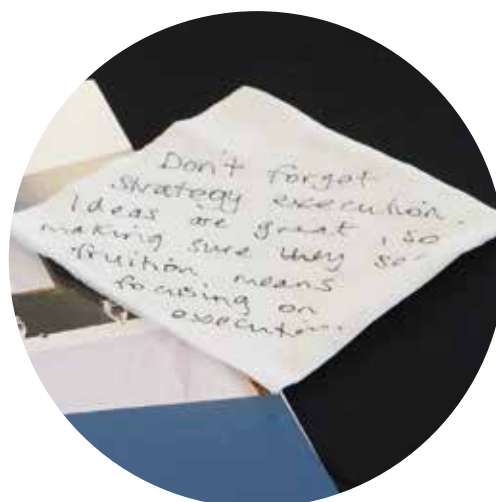 Don't forget
strategy execution.
Ideas are great, so
making sure they see
fruition means
focusing on
execution.